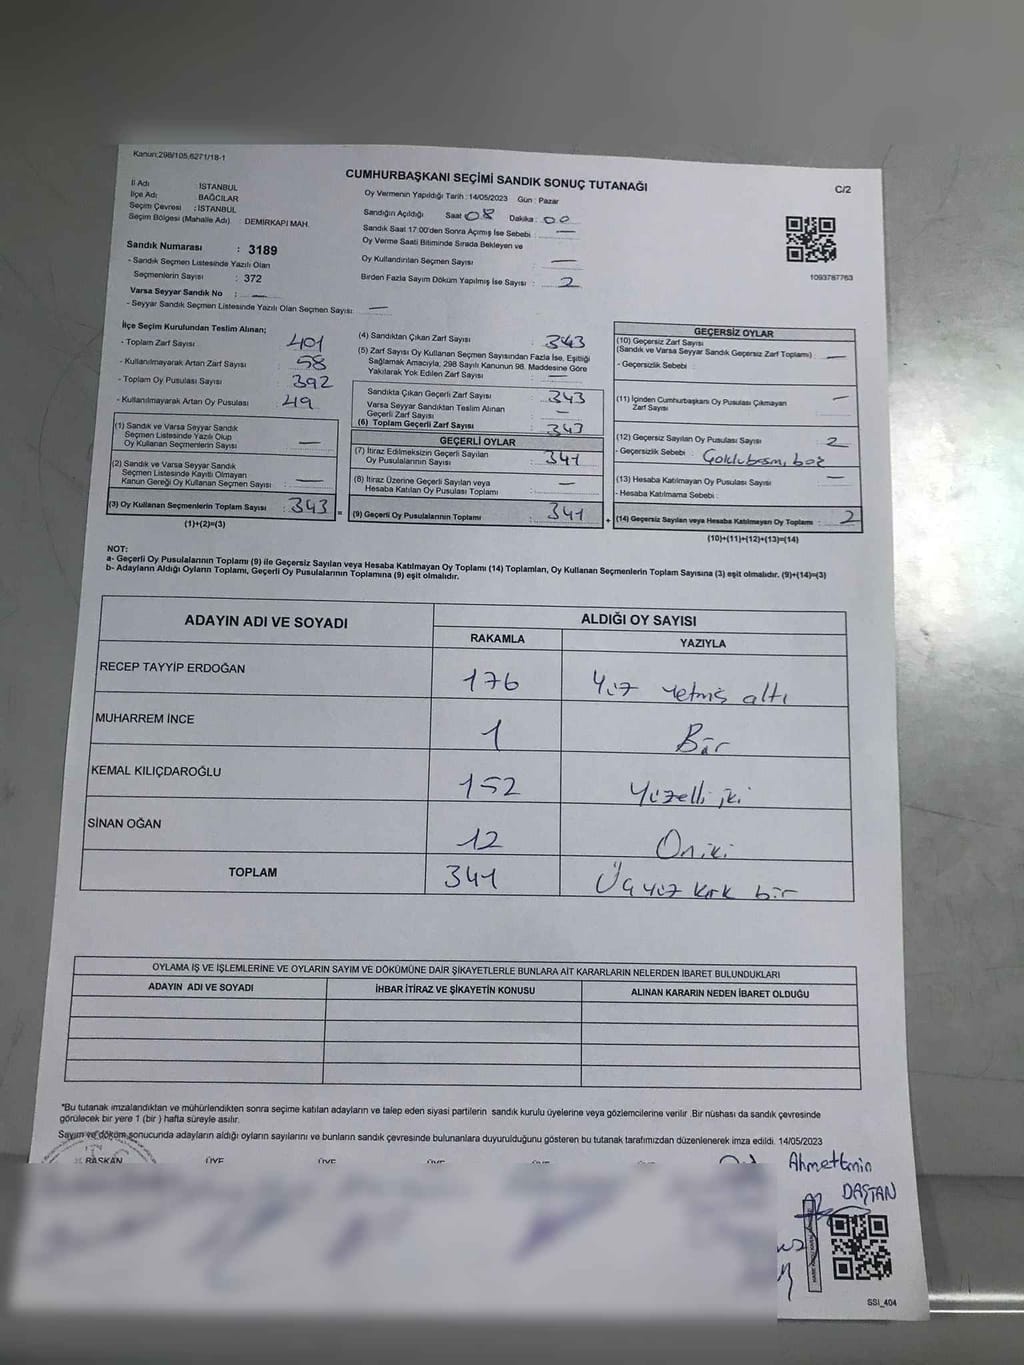 Kanun:298/105,6271/18-1
CUMHURBAŞKANI SEÇİMİ SANDIK SONUÇ TUTANAĞI
C/2
İl Adı : İSTANBUL
İlçe Adı : BAĞCILAR
Seçim Çevresi : İSTANBUL
Seçim Bölgesi (Mahalle Adı) : DEMİRKAPI MAH.
Oy Vermenin Yapıldığı Tarih : 14/05/2023 Gün : Pazar
Sandığın Açıldığı Saat : 08 Dakika : 00
Sandık Saat 17:00'den Sonra Açılmış İse Sebebi : —
Oy Verme Saati Bitiminde Sırada Bekleyen ve
Oy Kullandırılan Seçmen Sayısı : —
Birden Fazla Sayım Döküm Yapılmış İse Sayısı : 2
1093787763
Sandık Numarası : 3189
- Sandık Seçmen Listesinde Yazılı Olan
Seçmenlerin Sayısı : 372
Varsa Seyyar Sandık No : —
- Seyyar Sandık Seçmen Listesinde Yazılı Olan Seçmen Sayısı: —
İlçe Seçim Kurulundan Teslim Alınan;
- Toplam Zarf Sayısı : 401
- Kullanılmayarak Artan Zarf Sayısı : 58
- Toplam Oy Pusulası Sayısı : 392
- Kullanılmayarak Artan Oy Pusulası : 49
(1) Sandık ve Varsa Seyyar Sandık
Seçmen Listesinde Yazılı Olup
Oy Kullanan Seçmenlerin Sayısı : —
(2) Sandık ve Varsa Seyyar Sandık
Seçmen Listesinde Kayıtlı Olmayan
Kanun Gereği Oy Kullanan Seçmen Sayısı : —
(3) Oy Kullanan Seçmenlerin Toplam Sayısı : 343
(1)+(2)=(3)
(4) Sandıktan Çıkan Zarf Sayısı : 343
(5) Zarf Sayısı Oy Kullanan Seçmen Sayısından Fazla İse, Eşitliği
Sağlamak Amacıyla, 298 Sayılı Kanunun 98. Maddesine Göre
Yakılarak Yok Edilen Zarf Sayısı : —
Sandıkta Çıkan Geçerli Zarf Sayısı : 343
Varsa Seyyar Sandıktan Teslim Alınan
Geçerli Zarf Sayısı : —
(6) Toplam Geçerli Zarf Sayısı : 343
GEÇERLİ OYLAR
(7) İtiraz Edilmeksizin Geçerli Sayılan
Oy Pusulalarının Sayısı : 341
(8) İtiraz Üzerine Geçerli Sayılan veya
Hesaba Katılan Oy Pusulası Toplamı : —
(9) Geçerli Oy Pusulalarının Toplamı : 341
GEÇERSİZ OYLAR
(10) Geçersiz Zarf Sayısı
(Sandık ve Varsa Seyyar Sandık Geçersiz Zarf Toplamı) : —
- Geçersizlik Sebebi :
(11) İçinden Cumhurbaşkanı Oy Pusulası Çıkmayan
Zarf Sayısı : —
(12) Geçersiz Sayılan Oy Pusulası Sayısı : 2
- Geçersizlik Sebebi :
(13) Hesaba Katılmayan Oy Pusulası Sayısı : —
- Hesaba Katılmama Sebebi :
(14) Geçersiz Sayılan veya Hesaba Katılmayan Oy Toplamı : 2
(10)+(11)+(12)+(13)=(14)
NOT:
a- Geçerli Oy Pusulalarının Toplamı (9) ile Geçersiz Sayılan veya Hesaba Katılmayan Oy Toplamı (14) Toplamları, Oy Kullanan Seçmenlerin Toplam Sayısına (3) eşit olmalıdır. (9)+(14)=(3)
b- Adayların Aldığı Oyların Toplamı, Geçerli Oy Pusulalarının Toplamına (9) eşit olmalıdır.
ADAYIN ADI VE SOYADI
ALDIĞI OY SAYISI
RAKAMLA
YAZIYLA
RECEP TAYYİP ERDOĞAN 176 Yüz yetmiş altı
MUHARREM İNCE 1 Bir
KEMAL KILIÇDAROĞLU 152 Yüzelli iki
SİNAN OĞAN 12 Oniki
TOPLAM 341 Üçyüz kırk bir
OYLAMA İŞ VE İŞLEMLERİNE VE OYLARIN SAYIM VE DÖKÜMÜNE DAİR ŞİKAYETLERLE BUNLARA AİT KARARLARIN NELERDEN İBARET BULUNDUKLARI
ADAYIN ADI VE SOYADI
İHBAR İTİRAZ VE ŞİKAYETİN KONUSU
ALINAN KARARIN NEDEN İBARET OLDUĞU
*Bu tutanak imzalandıktan ve mühürlendikten sonra seçime katılan adayların ve talep eden siyasi partilerin sandık kurulu üyelerine veya gözlemcilerine verilir .Bir nüshası da sandık çevresinde
görülecek bir yere 1 (bir ) hafta süreyle asılır.
Sayım ve döküm sonucunda adayların aldığı oyların sayılarını ve bunların sandık çevresinde bulunanlara duyurulduğunu gösteren bu tutanak tarafımızdan düzenlenerek imza edildi. 14/05/2023
BAŞKAN ÜYE ÜYE ÜYE ÜYE
DAŞTAN
SSI_404